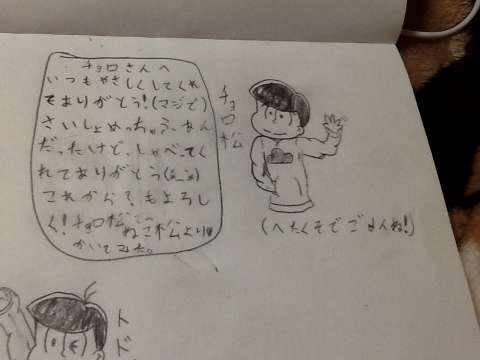 チョロさんへ
いつもやさしくしてくれ
てありがとう!(マジで)
さいしょめっちゃふあん
だったけど、しゃべってく
れてありがとう(;_;)
これからもよろし
く!チョロ松
ねこ松より
かいてみた。
チョロ松
(へたくそでごめんね!)
トド